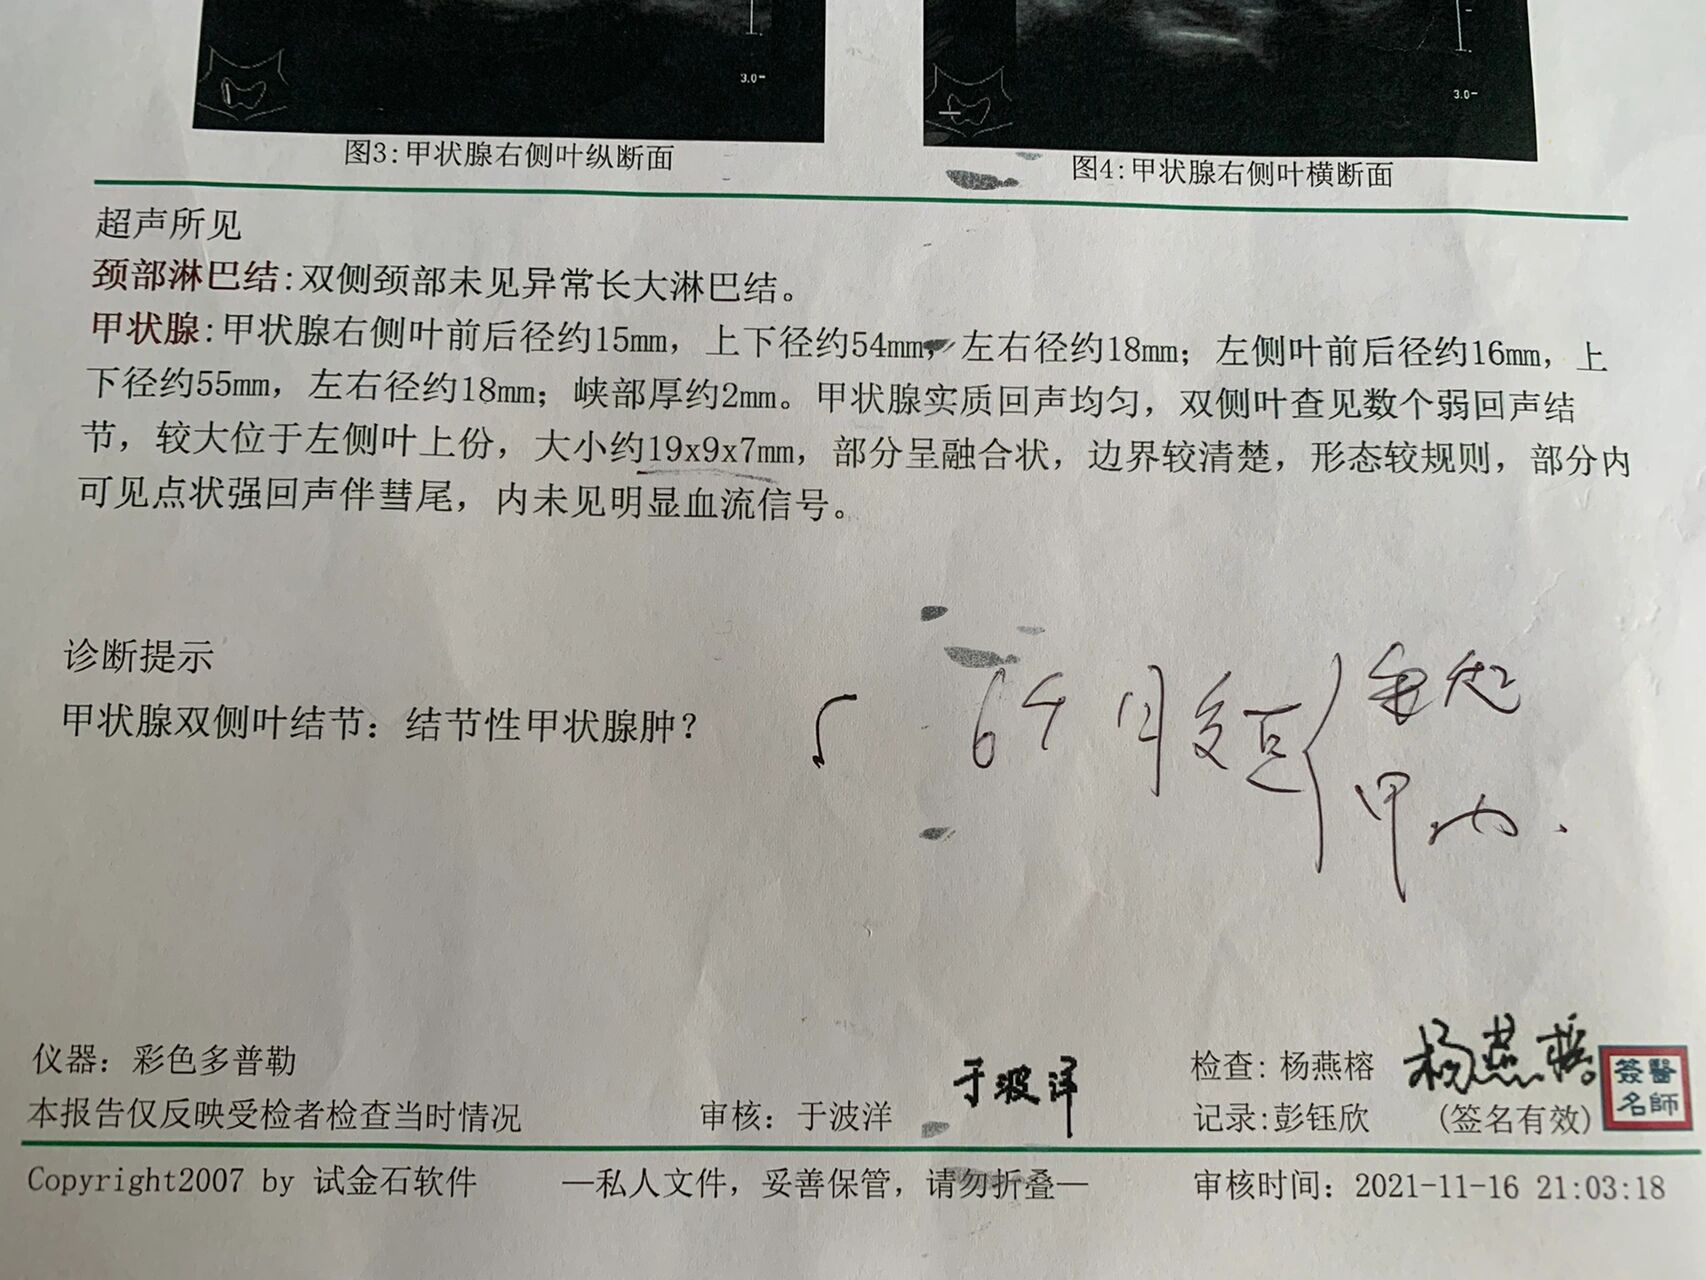 3.0-
3.0-
图3:甲状腺右侧叶纵断面
图4:甲状腺右侧叶横断面
超声所见
颈部淋巴结:双侧颈部未见异常长大淋巴结。
甲状腺:甲状腺右侧叶前后径约15mm，上下径约54mm，左右径约18mm；左侧叶前后径约16mm，上
下径约55mm，左右径约18mm；峡部厚约2mm。甲状腺实质回声均匀，双侧叶查见数个弱回声结
节，较大位于左侧叶上份，大小约19x9x7mm，部分呈融合状，边界较清楚，形态较规则，部分内
可见点状强回声伴彗尾，内未见明显血流信号。
诊断提示
甲状腺双侧叶结节：结节性甲状腺肿？
6个月复查
甲功
仪器：彩色多普勒
本报告仅反映受检者检查当时情况
审核：于波洋
于波洋
检查：杨燕榕
杨燕榕
记录:彭钰欣
(签名有效)
醫師簽名
Copyright2007 by 试金石软件
—私人文件，妥善保管，请勿折叠—
审核时间：2021-11-16 21:03:18